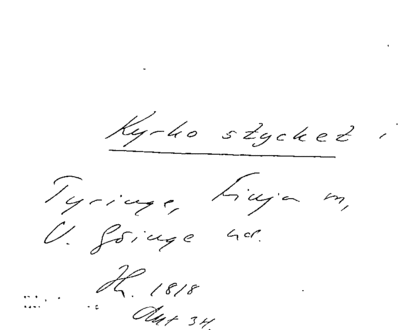 Kyrko stycket i
Tyringe, Finja m,
V. Göinge hd.
Jh. 1818
Akt 34.